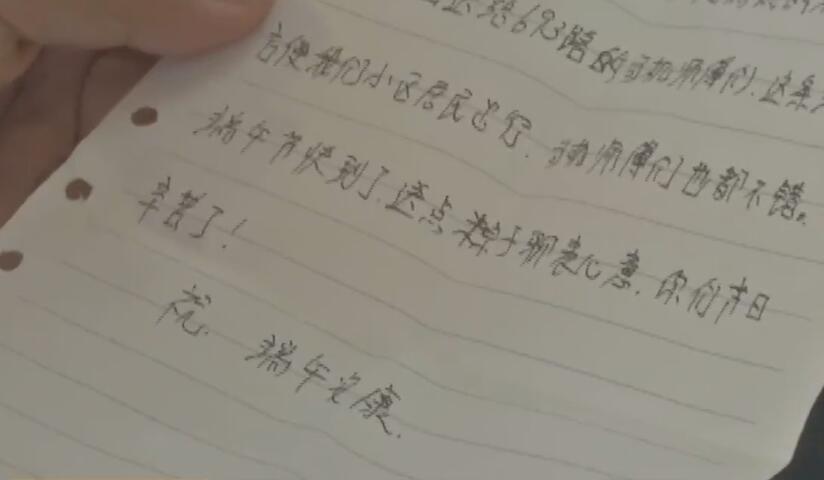 送给693路的司机师傅们.这条
方便我们小区居民出行.司机师傅们也都不错。
端午节快到了,送点粽子聊表心意.你们节日
辛苦了!
祝.端午安康.